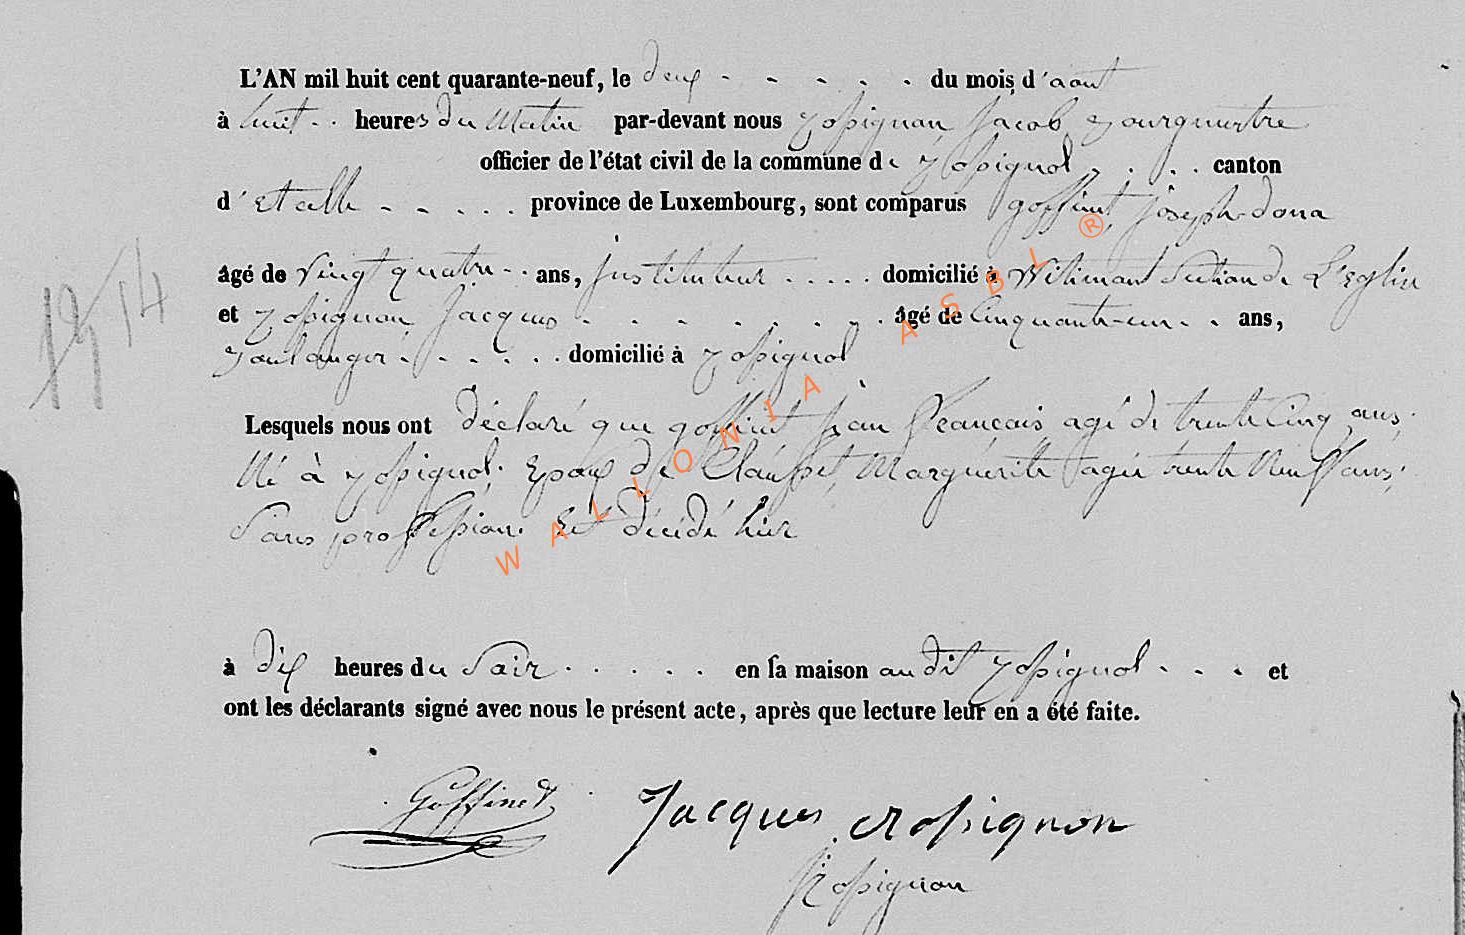 L'AN mil huit cent quarante-neuf, le deux - - - - - du mois d'aout
à huit - - heures du Matin par-devant nous Rossignon Jacob Bourgmestre
officier de l'état civil de la commune de Rossignol - - - canton
d'Etalle - - - - - province de Luxembourg, sont comparus goffinet joseph
âgé de Vingt quatre - - ans, justituteur - - - - - domicilié à Witimont Section de L'Eglise
et Rossignon Jacques - - - - - - - - âgé de Cinquante-un - - ans,
Boulanger - - - - - - domicilié à Rossignol
Lesquels nous ont déclaré que goffinet jean francois agé de trente Cinq ans,
Né à Rossignol, Epoux de Clausset, Marguerite agée trente Neuf ans,
Sans profession. Est décédé hier
à dix heures du Soir - - - - - en sa maison audit Rossignol - - - et
ont les déclarants signé avec nous le présent acte, après que lecture leur en a été faite.
Goffinet Jacques Rossignon
Rossignon
14
WALLONIA ASBL ®